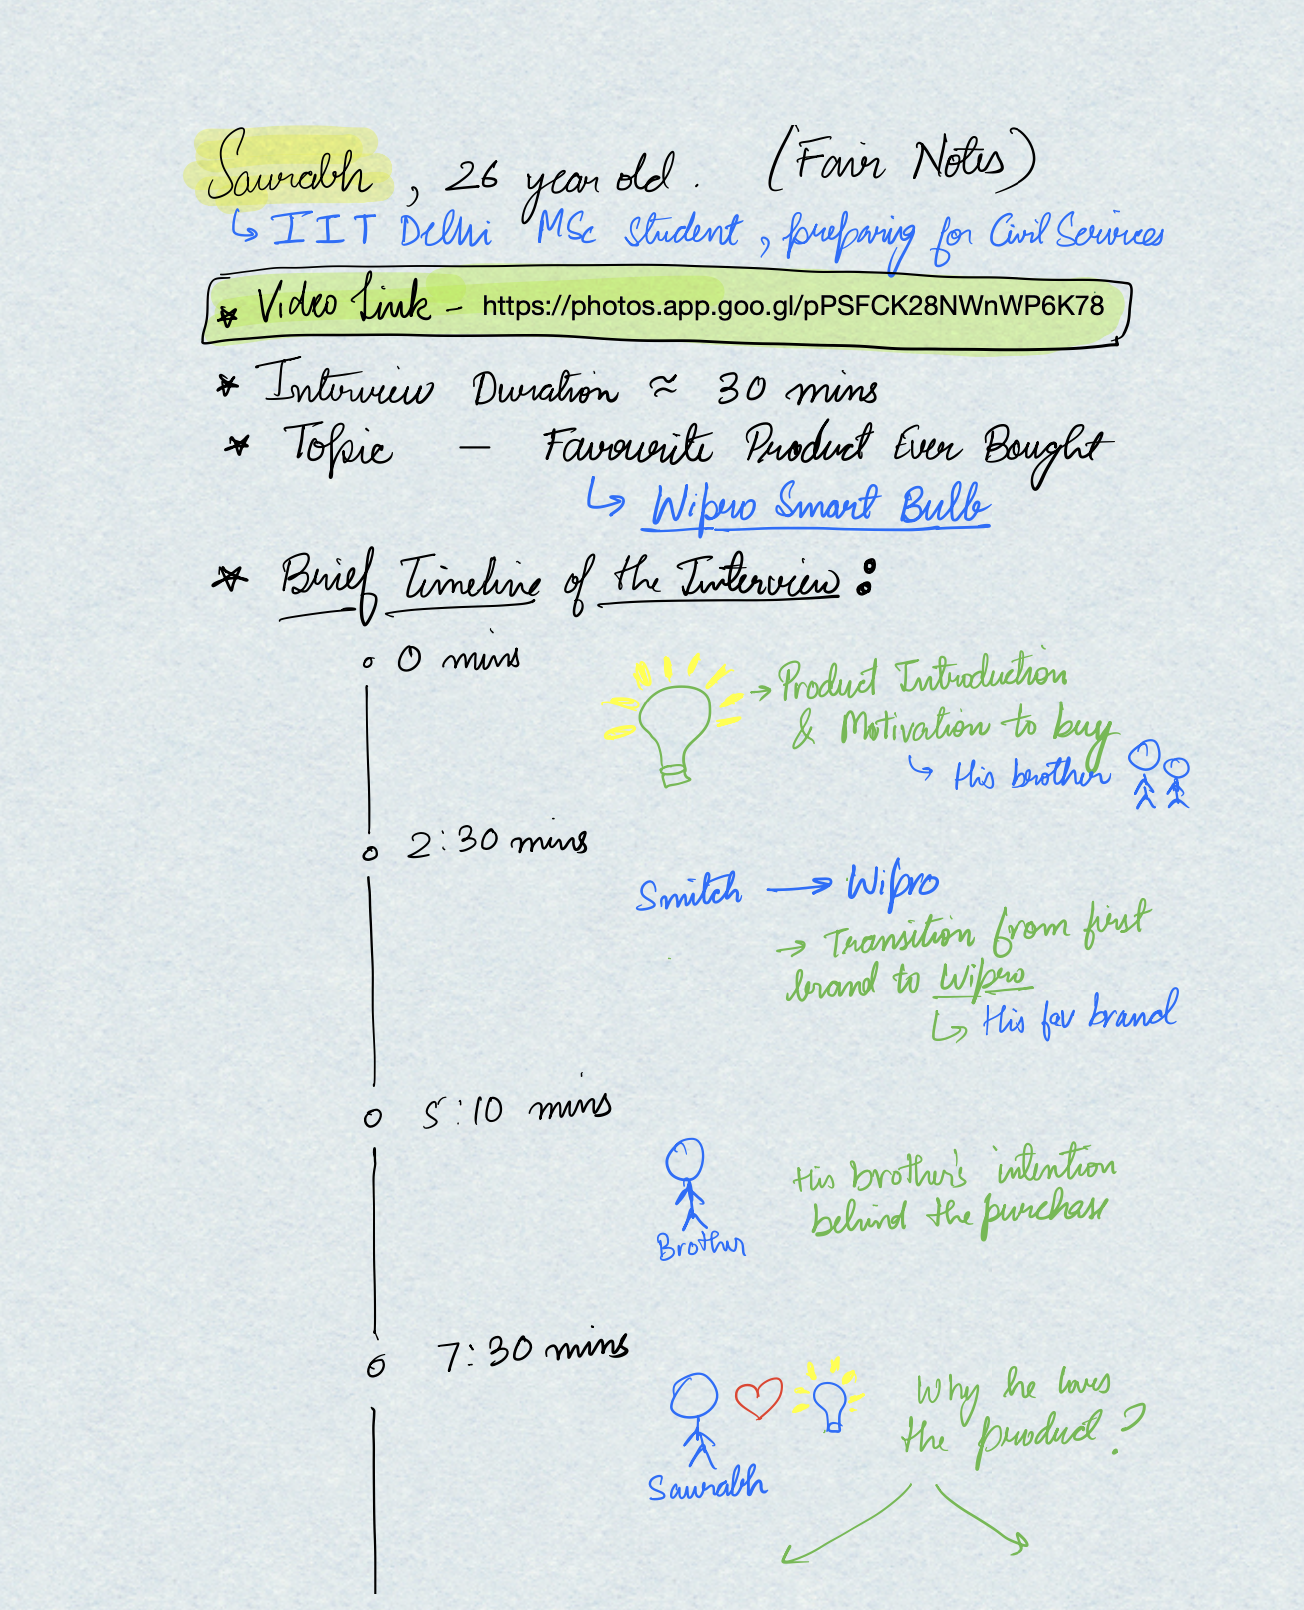 Saurabh, 26 year old. (Fair Notes)
↳ IIT Delhi MSc student, preparing for Civil Services
★ Video Link - https://photos.app.goo.gl/pPSFCK28NWnWP6K78
★ Interview Duration ≈ 30 mins
★ Topic — Favourite Product Ever Bought
↳ Wipro Smart Bulb
★ Brief Timeline of the Interview :
0 mins
→ Product Introduction
& Motivation to buy
↳ His brother
2:30 mins
Smitch → Wipro
→ Transition from first
brand to Wipro
↳ His fav brand
5:10 mins
His brother's intention
behind the purchase
Brother
7:30 mins
Why he loves
the product?
Saurabh